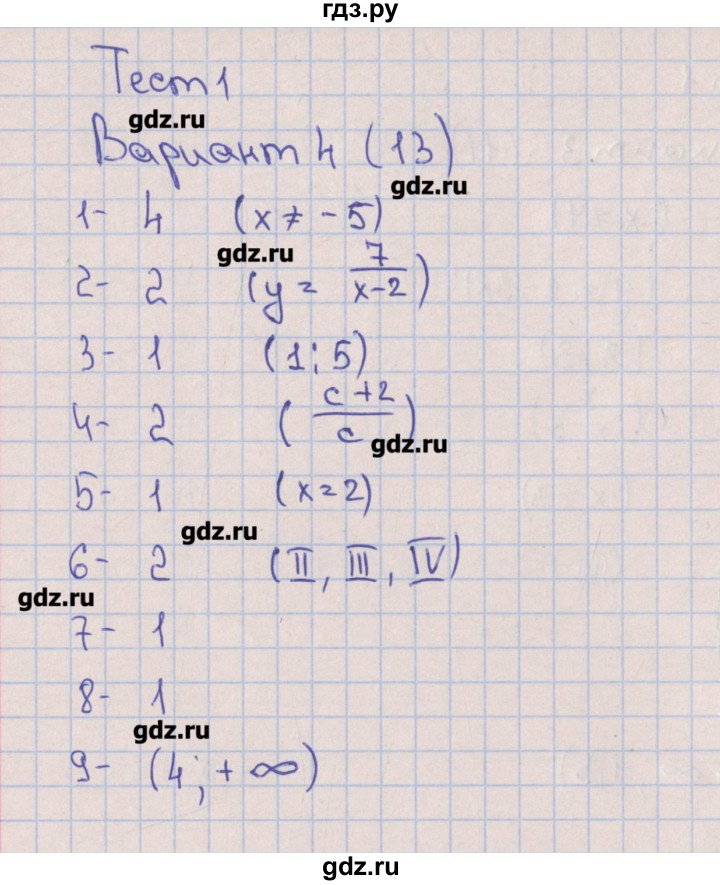 гдз.ру
Тест 1
gdz.ru
Вариант 4 (13)
gdz.ru
1- 4 (x ≠ -5)
gdz.ru
2- 2 (y = 7/(x-2))
3- 1 (1; 5)
4- 2 ((c+2)/c)
gdz.ru
5- 1 (x=2)
gdz.ru
6- 2 (II, III, IV)
gdz.ru
7- 1
8- 1
gdz.ru
9- (4; +∞)
gdz.ru